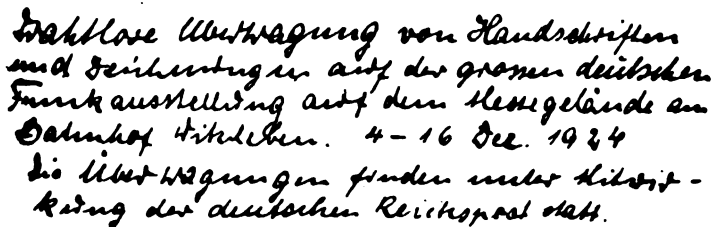 Drahtlose Übertragung von Handschriften
und Zeichnungen auf der grossen deutschen
Funkausstellung auf dem Messegelände am
Bahnhof Witzleben. 4-16 Dez. 1924
Die Übertragungen finden unter Mitwir-
kung der deutschen Reichspost statt.